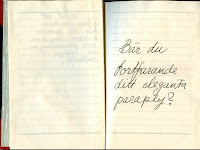 Bär du
fortfarande
ditt eleganta
paraply?